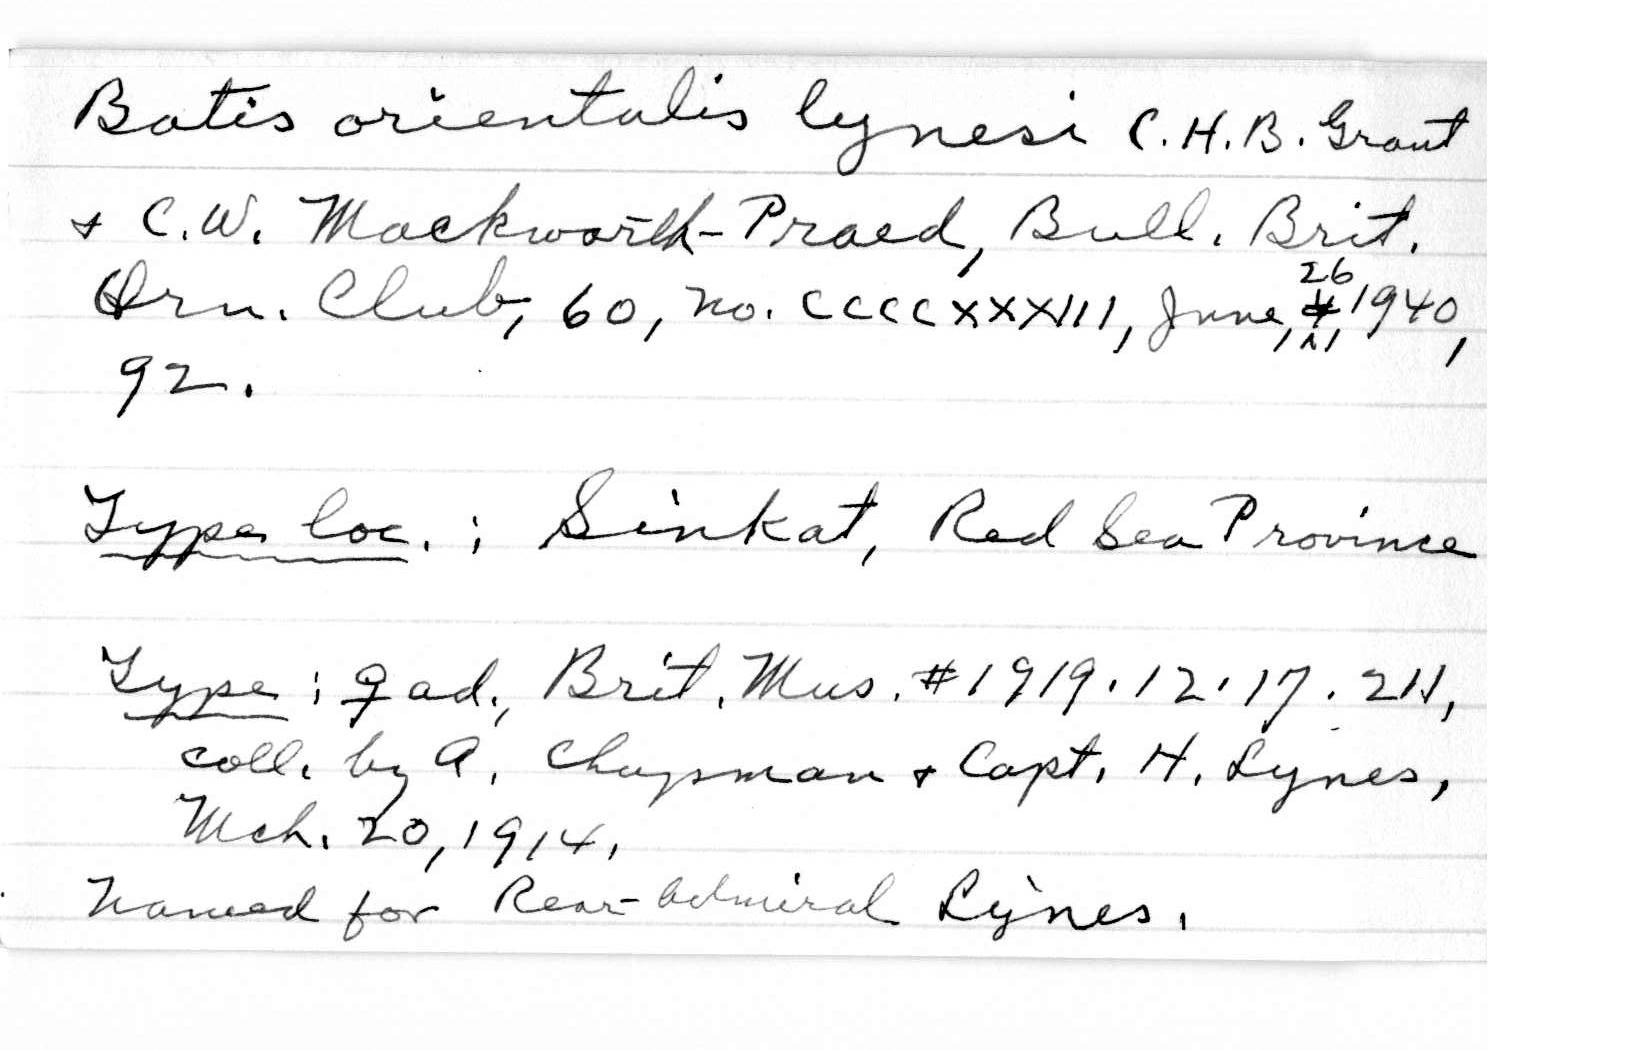 Batis orientalis lynesi C.H.B. Grant
& C.W. Mackworth-Praed, Bull. Brit.
Orn. Club, 60, no. CCCCXXXIII, June, 26, 1940,
92.
Type loc.: Sinkat, Red Sea Province
Type: ♀ ad., Brit. Mus. #1919.12.17.211,
coll. by A. Chapman & Capt. H. Lynes,
Mch. 20, 1914.
Named for Rear-Admiral Lynes.